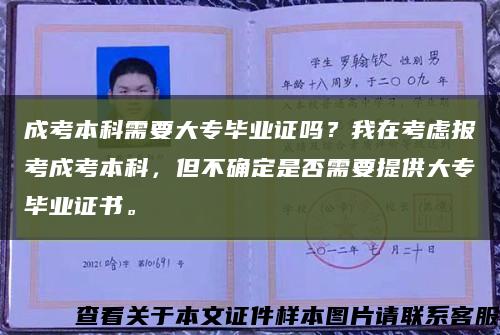 学生 罗翰钦 性别 男
年龄十八周岁，于二〇〇九年
成考本科需要大专毕业证吗？我在考虑报
考成考本科，但不确定是否需要提供大专
毕业证书。
二〇一二年 七 月 二十 日
2012(哈)字 第101691号
查看关于本文证件样本图片请联系客服